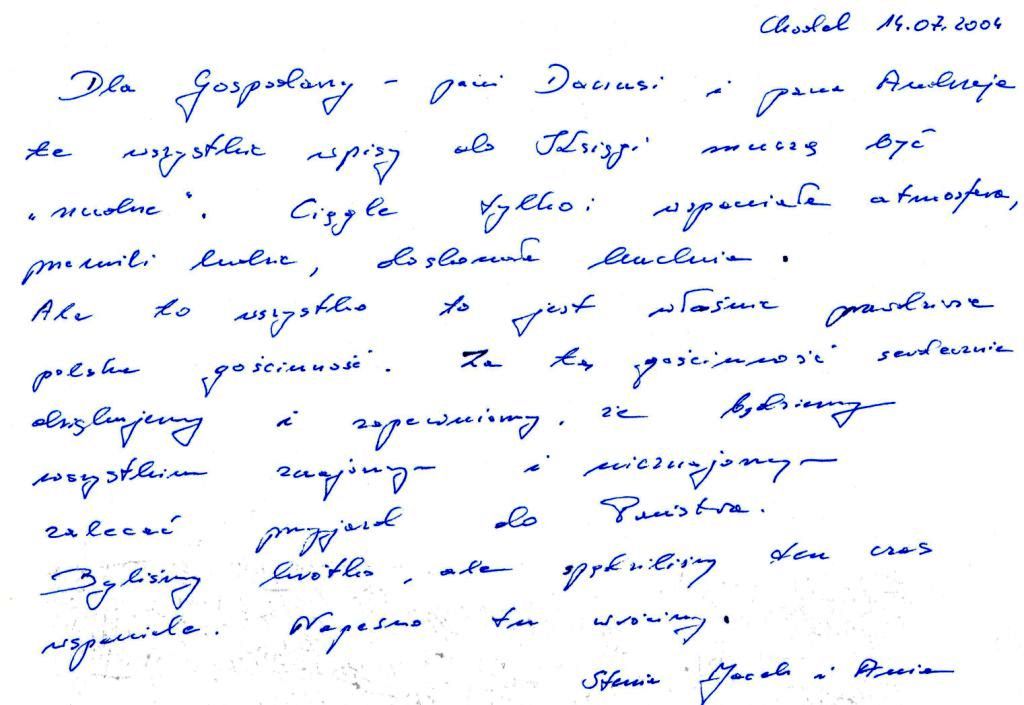 Chodel 14.07.2004
Dla Gospodarzy - pani Danusi i pana Andrzeja
te wszystkie wpisy do Księgi muszą być
"nudne". Ciągle tylko: wspaniała atmosfera,
przemili ludzie, doskonała kuchnia.
Ale to wszystko to jest właśnie prawdziwa
polska gościnność. Za tą gościnność serdecznie
dziękujemy i zapewniamy, że będziemy
wszystkim znajomym i nieznajomym
zalecać przyjazd do Państwa.
Byliśmy krótko, ale spędziliśmy ten czas
wspaniale. Napewno tu wrócimy.
Jacek i Ania